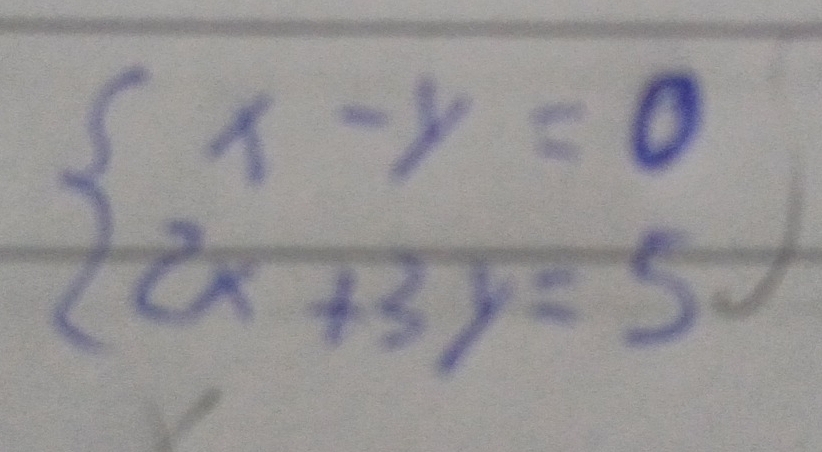 x - y = 0
2x + 3y = 5